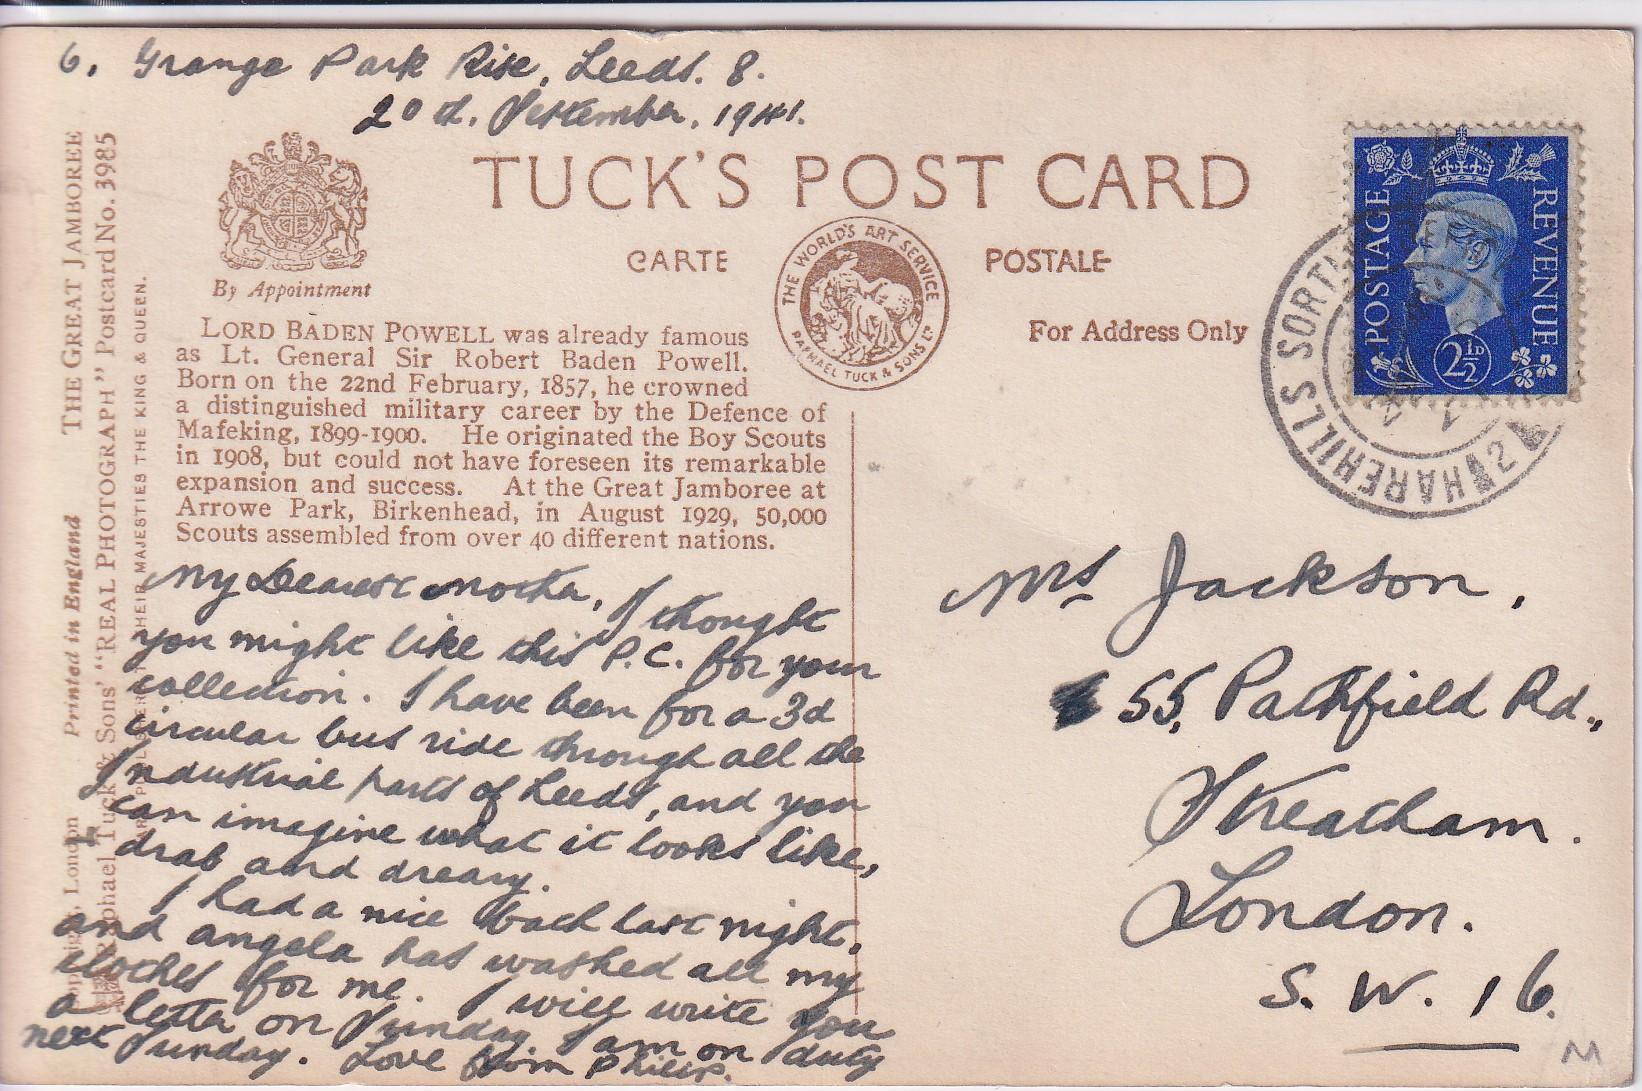 6, Grange Park Rise, Leeds. 8.
20th. September, 1941.
TUCK'S POST CARD
CARTE POSTALE
By Appointment
THE WORLD'S ART SERVICE
RAPHAEL TUCK & SONS LTD
For Address Only
POSTAGE
REVENUE
2½D
HAREHILLS SORTI
LORD BADEN POWELL was already famous
as Lt. General Sir Robert Baden Powell.
Born on the 22nd February, 1857, he crowned
a distinguished military career by the Defence of
Mafeking, 1899-1900. He originated the Boy Scouts
in 1908, but could not have foreseen its remarkable
expansion and success. At the Great Jamboree at
Arrowe Park, Birkenhead, in August 1929, 50,000
Scouts assembled from over 40 different nations.
My Dearest Mother, I thought
you might like this P.C. for your
collection. I have been for a 3d
circular bus ride through all the
Industrial parts of Leeds, and you
can imagine what it looks like,
drab and dreary.
I had a nice bath last night,
and angela has washed all my
clothes for me. I will write you
a letter on Sunday. I am on duty
next Sunday. Love from Philip.
Mrs Jackson,
55, Pathfield Rd.,
Streatham.
London.
S. W. 16.
M
London Printed in England THE GREAT JAMBOREE
Raphael Tuck & Sons' "REAL PHOTOGRAPH" Postcard No. 3985
THEIR MAJESTIES THE KING & QUEEN.